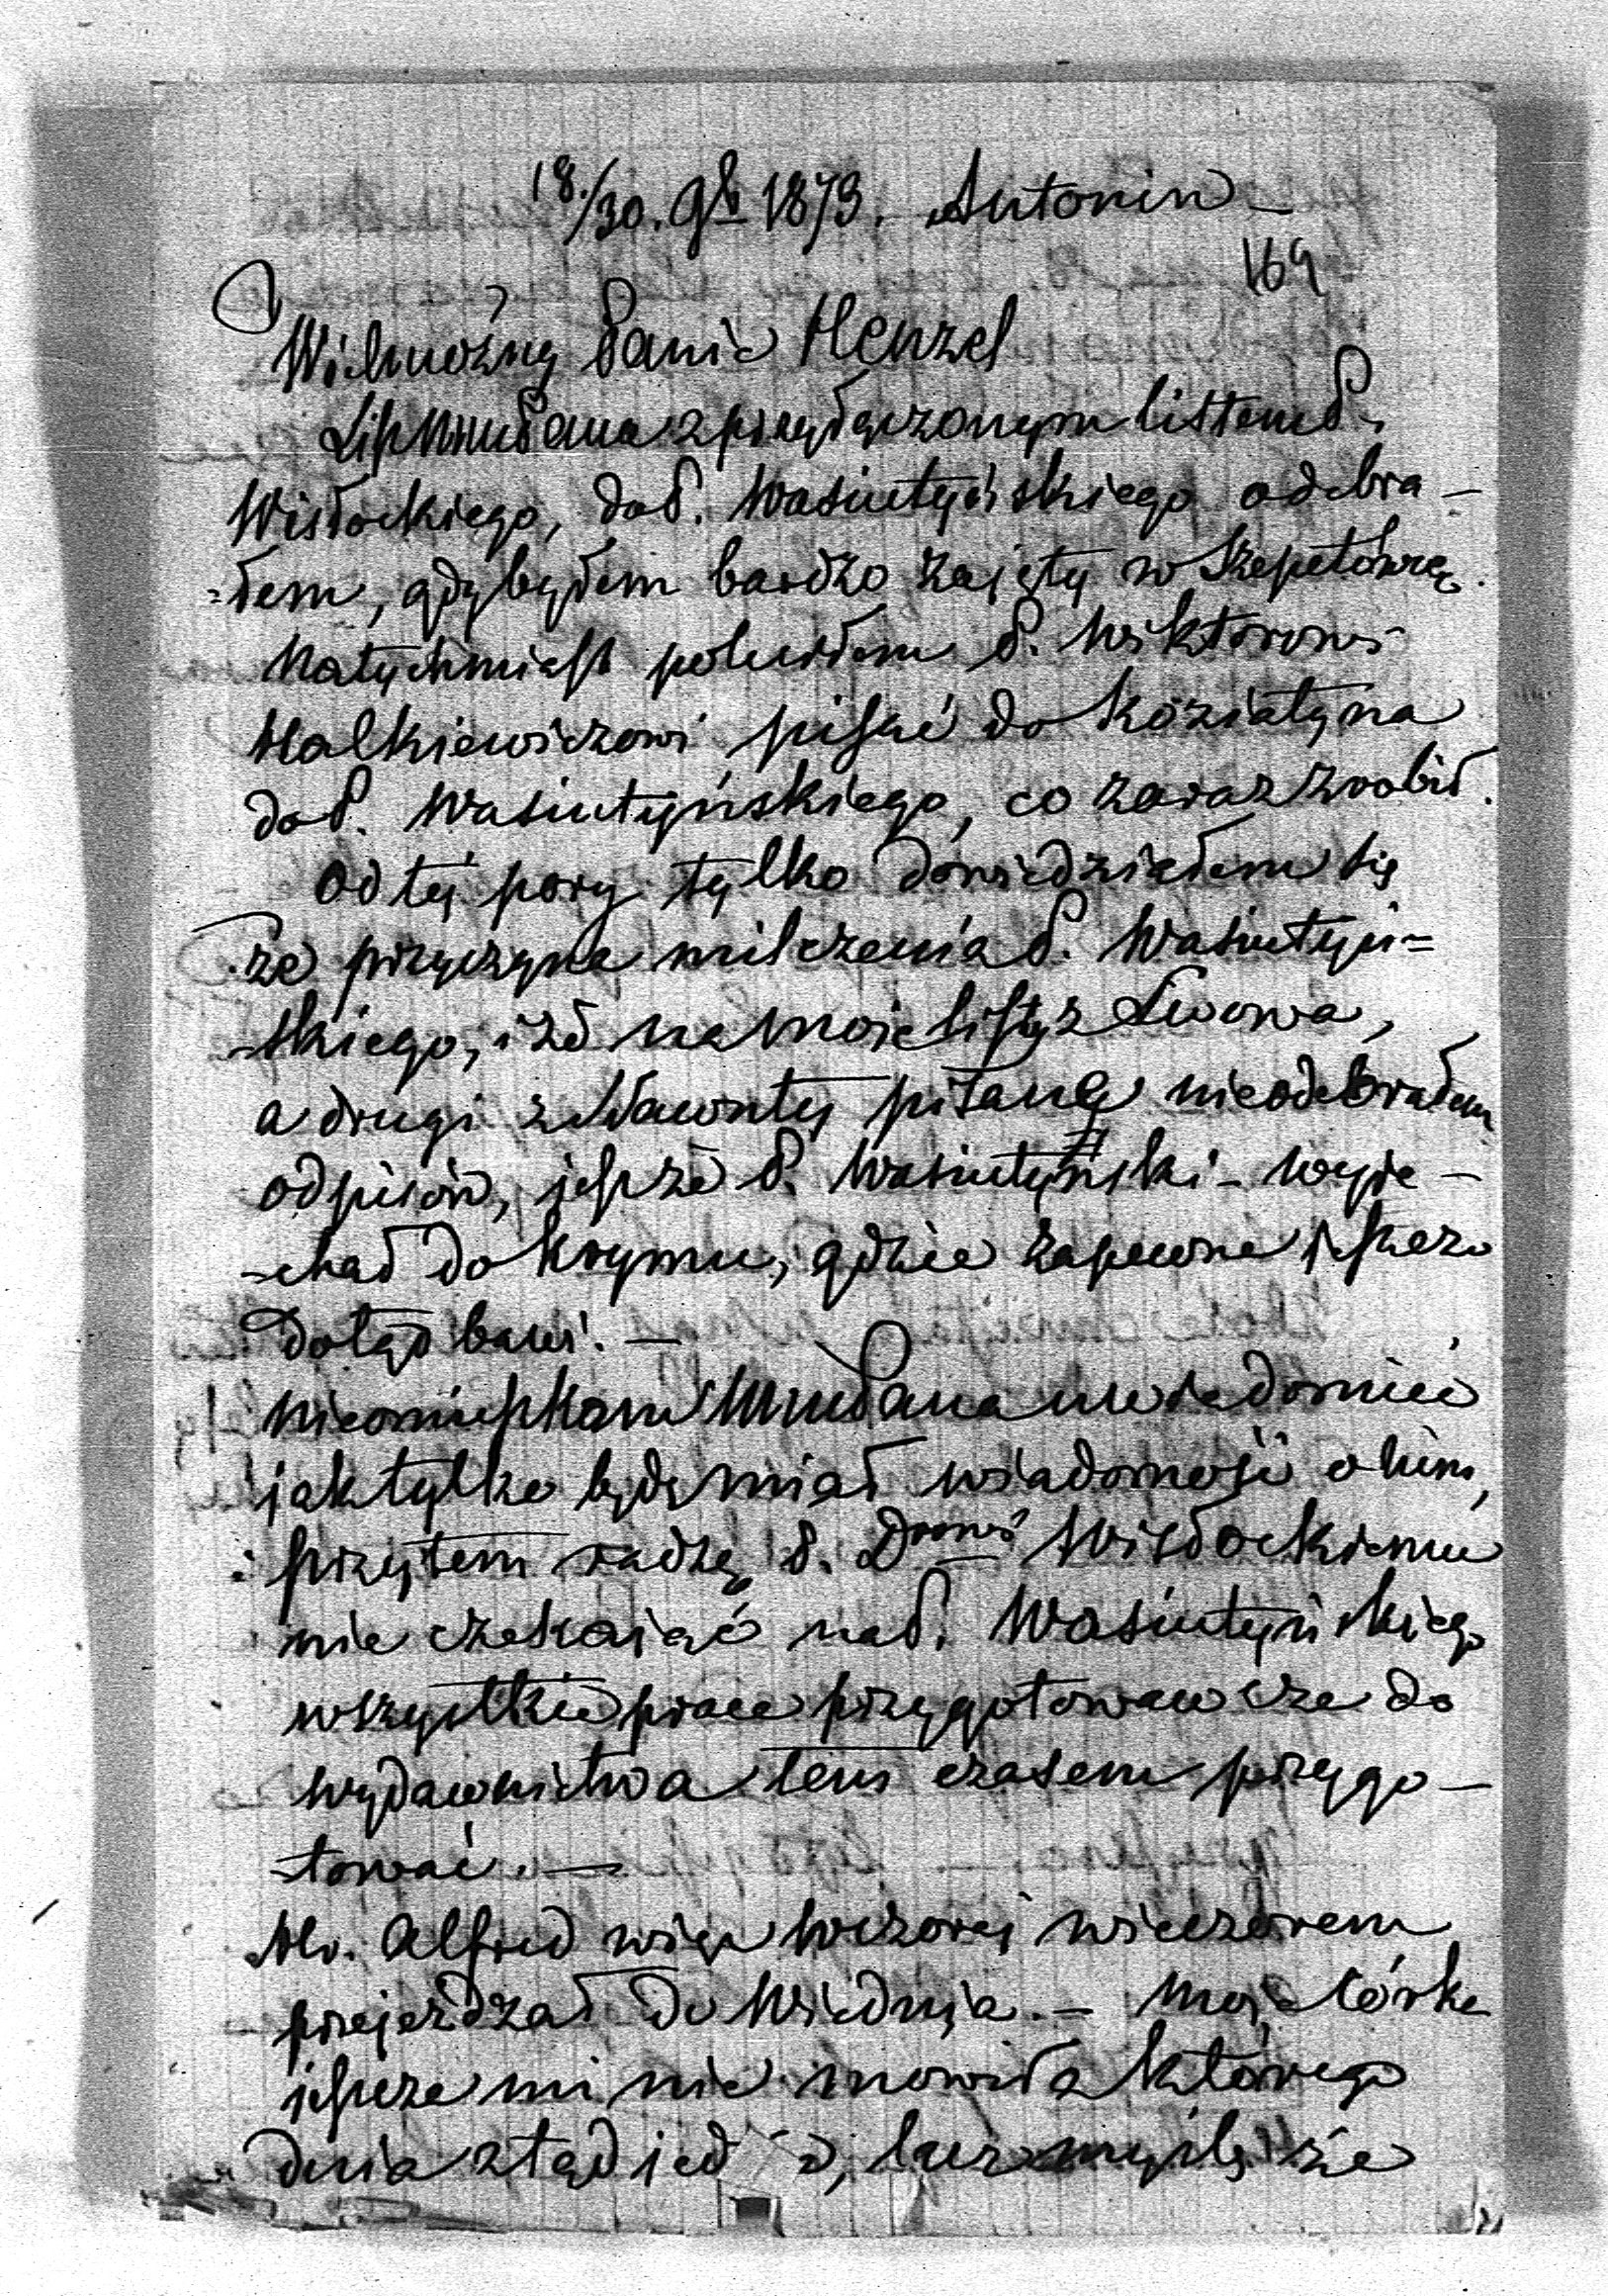 18./30. 9b 1879. Antonin —
169
Wielmożny Panie Henzel
List WmnPana z przyłączonym listem P.
Wisłockiego, do P. Wasiutyńskiego odebra-
-łem, gdy byłem bardzo zajęty w Szepetówce.
Natychmiast poleciłem P. Wiktorowi
Halkiewiczowi pisać do Koziatyna
do P. Wasiutyńskiego, co zaraz zrobił.
Od téj pory tylko dowiedziałem się
że przyczyna milczenia P. Wasiutyń=
-skiego, i że na moje listy z Lwowa,
a drugi z Sławuty pisane nieodebrałem
odpisów, jest że P. Wasiutyński - wyje-
-chał do Krymu, gdzie zapewne jeszcze
dotąd bawi. —
Nieomieszkam WmnPana uwiadomić
jak tylko będę miał wiadomość o nim,
i przytem radzę P. Drowi Wisłockiemu
nie czekając na P. Wasiutyńskiego
wszystkie prace przygotowawcze do
wydawnictwa tem czasem przygo-
-tować. —
Hr. Alfred więc wczoraj wieczorem
przejeżdżał do Wiednia. — Moja Córka
jeszcze mi nie mowiła którego
dnia ztąd jed , lecz myślę że